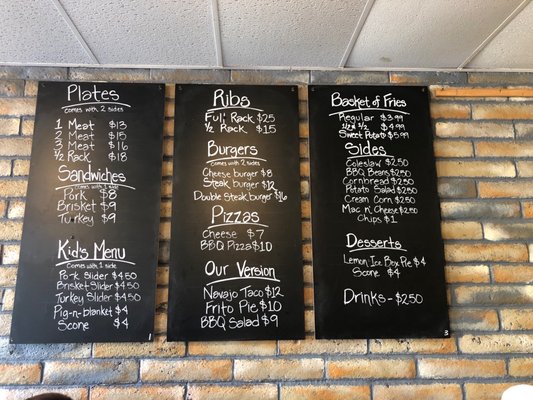 Plates
comes with 2 sides
1 Meat $13
2 Meat $15
3 Meat $16
½ Rack $18
Sandwiches
comes with 1 side
Pork $8
Brisket $9
Turkey $9
Kid's Menu
comes with 1 side
Pork Slider $4.50
Brisket Slider $4.50
Turkey Slider $4.50
Pig-n-blanket $4
Scone $4
1
Ribs
Full Rack $25
½ Rack $15
Burgers
comes with 2 sides
Cheese burger $8
Steak burger $12
Double Steak burger $16
Pizzas
Cheese $7
BBQ Pizza $10
Our Version
Navajo Taco $12
Frito Pie $10
BBQ Salad $9
Basket of Fries
Regular $3.99
½ n ½ $4.99
Sweet Potato $5.99
Sides
Coleslaw $2.50
BBQ Beans $2.50
Cornbread $2.50
Potato Salad $2.50
Cream Corn $2.50
Mac n' Cheese $2.50
Chips $1
Desserts
Lemon Ice Box Pie $4
Scone $4
Drinks - $2.50
3